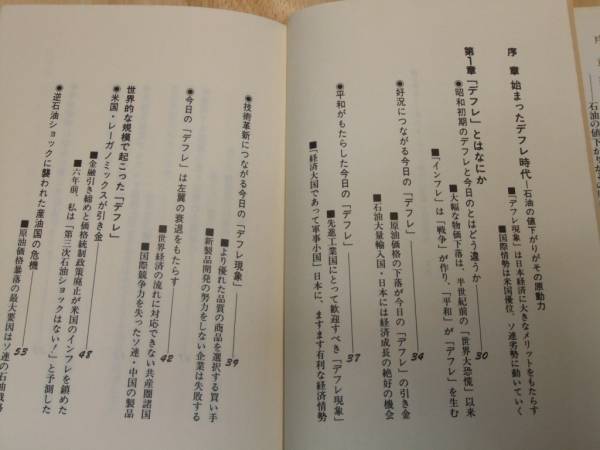 序 章 始まったデフレ時代―石油の値下がりがその原動力
■「デフレ現象」は日本経済に大きなメリットをもたらす
■国際情勢は米国優位、ソ連劣勢に動いていく
第1章 「デフレ」とはなにか
●昭和初期のデフレと今日のとはどう違うか 30
■大幅な物価下落は、半世紀前の「世界大恐慌」以来
■「インフレ」は「戦争」が作り、「平和」が「デフレ」を生む
●好況につながる今日の「デフレ」 34
■原油価格の下落が今日の「デフレ」の引き金
■石油大量輸入国・日本には経済成長の絶好の機会
●平和がもたらした今日の「デフレ」 37
■先進工業国にとって歓迎すべき「デフレ現象」
■「経済大国であって軍事小国」日本に、ますます有利な経済情勢
●技術革新につながる今日の「デフレ現象」 39
■より優れた品質の商品を選択する買い手
■新製品開発の努力をしない企業は失敗する
●今日の「デフレ」は左翼の衰退をもたらす 42
■世界経済の流れに対応できない共産圏諸国
■国際競争力を失ったソ連・中国の製品
世界的な規模で起こった「デフレ」
●米国・レーガノミックスが引き金 48
■金融引き締めと価格統制政策廃止が米国のインフレを鎮めた
■六年前、私は「第三次石油ショックはない！」と予測した
●逆石油ショックに襲われた産油国の危機 53
■原油価格暴落の最大要因はソ連の石油戦略